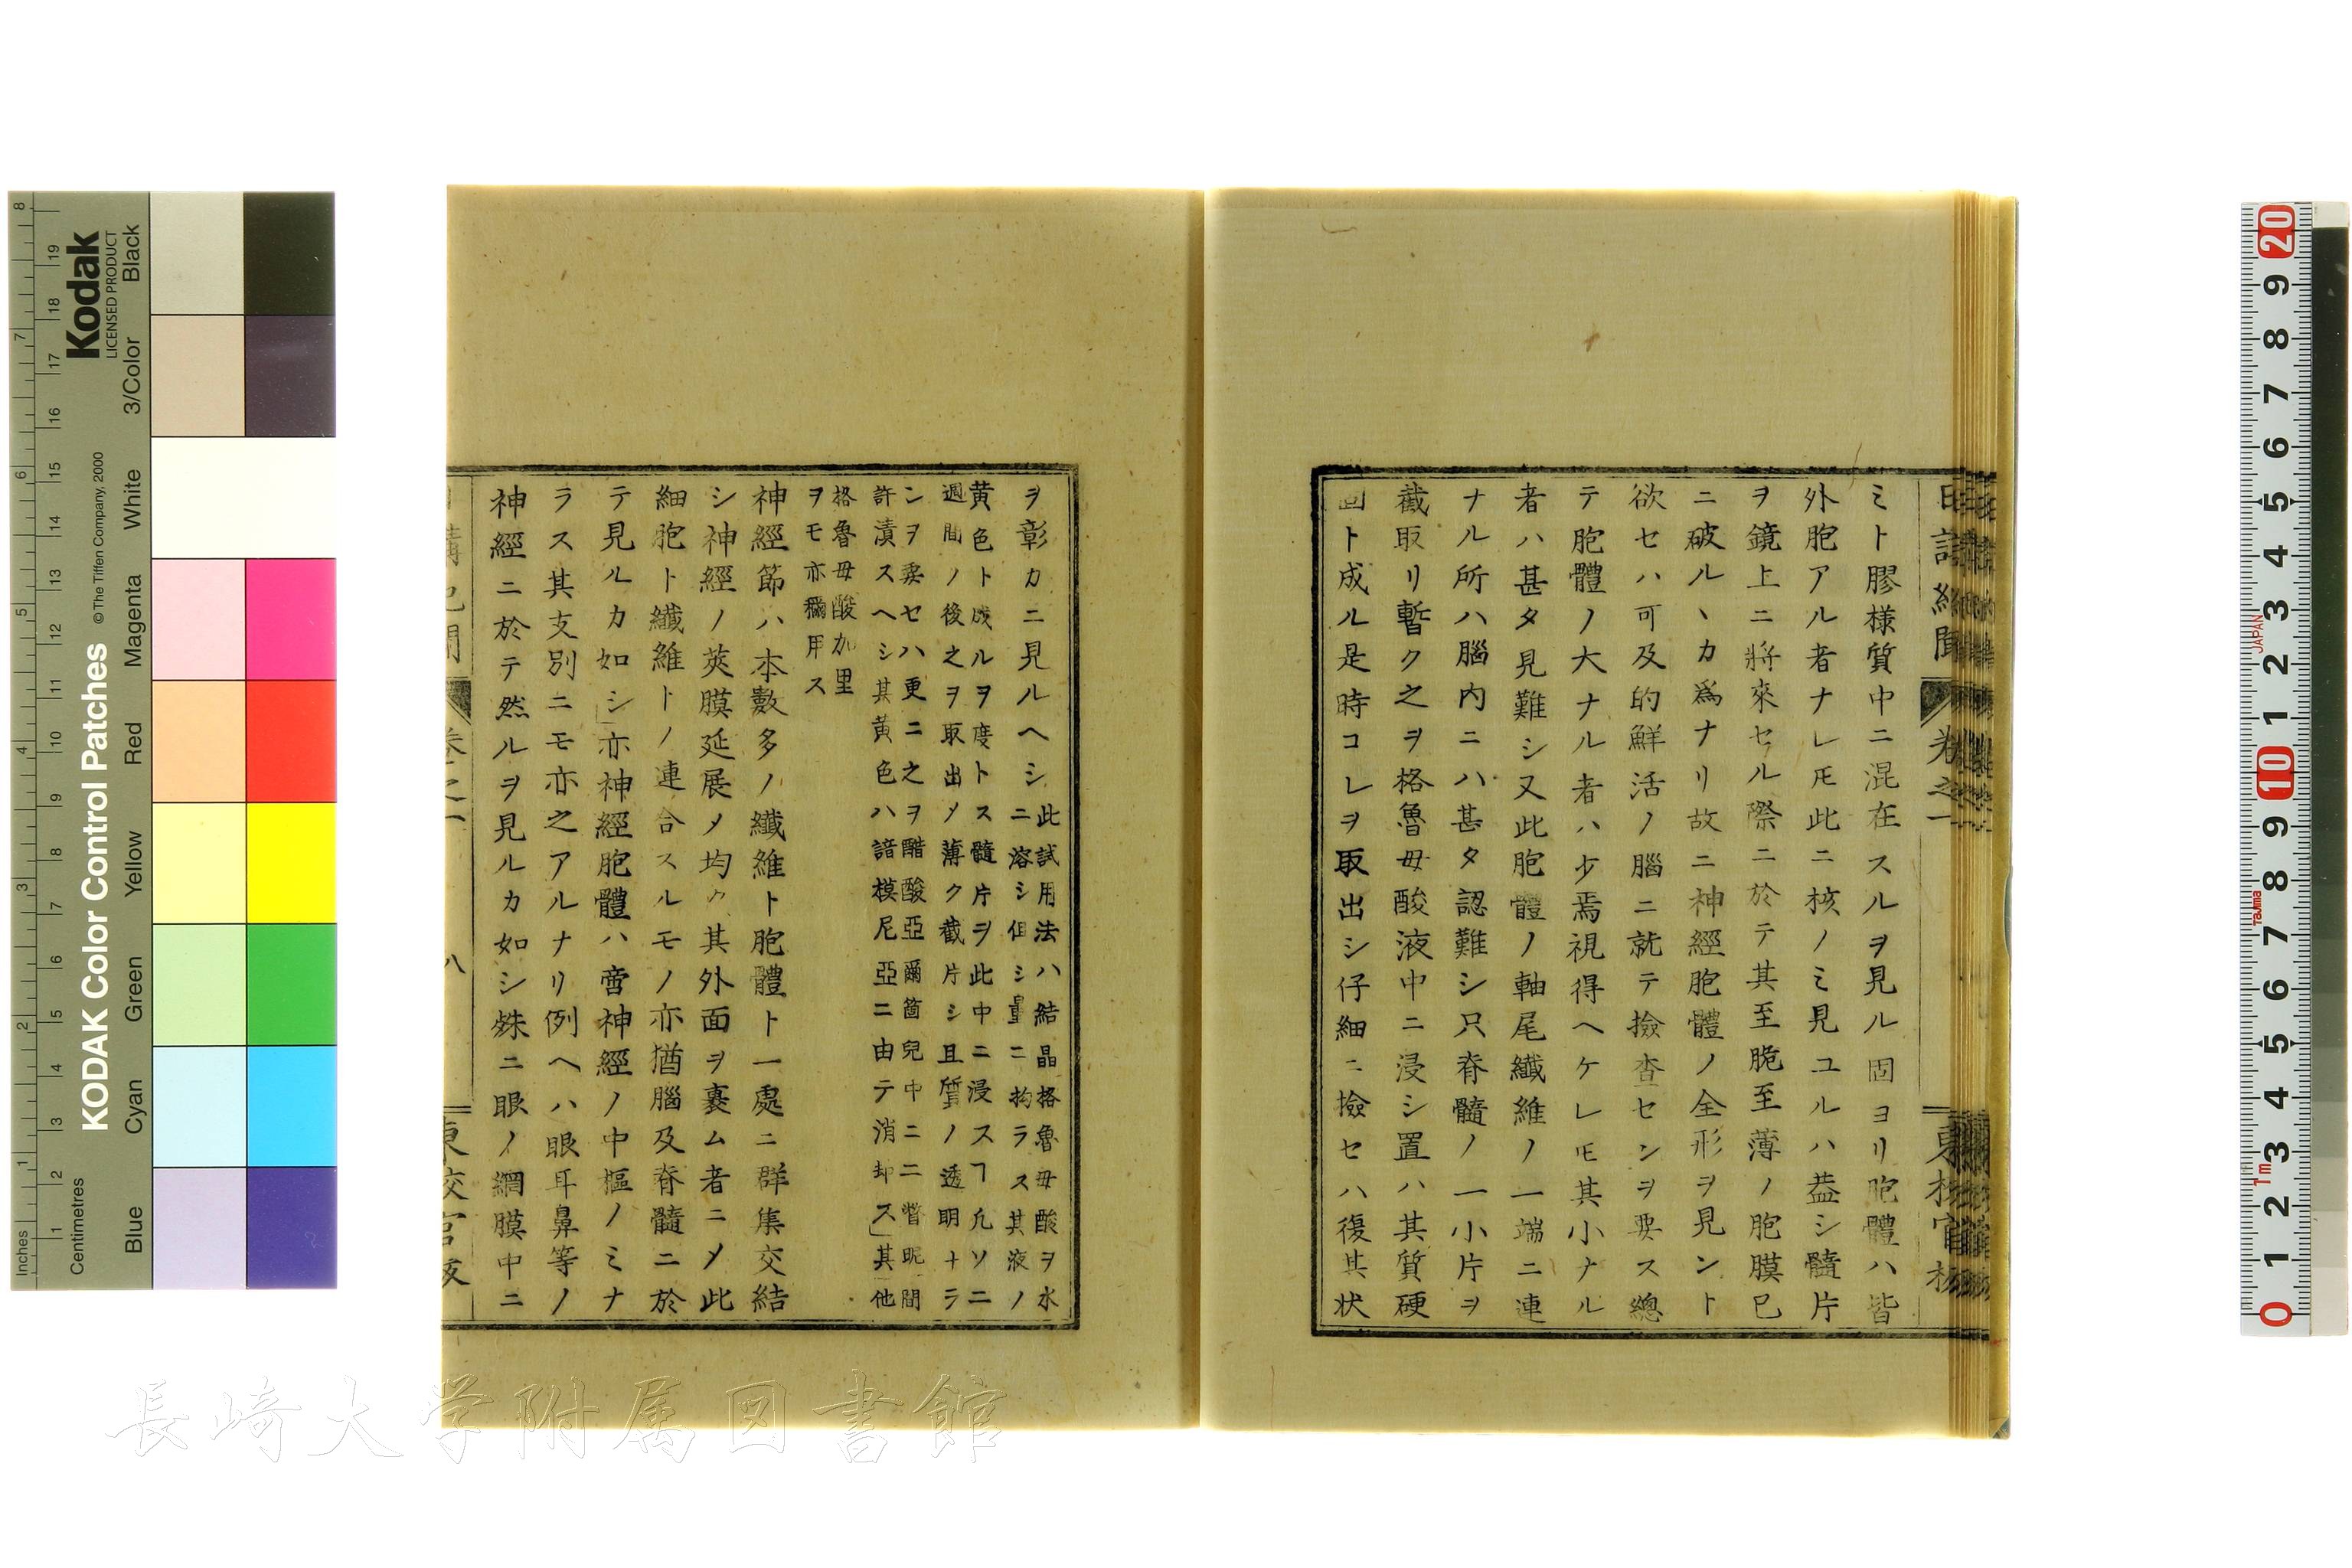 ミト膠様質中ニ混在スルヲ見ル固ヨリ胞體ハ皆
外胞アル者ナレ𪜈此ニ核ノミ見ユルハ葢シ髓片
ヲ鏡上ニ將來セル際ニ於テ其至脆至薄ノ胞膜已
ニ破ルヽカ爲ナリ故ニ神經胞體ノ全形ヲ見ント
欲セハ可及的鮮活ノ腦ニ就テ撿査センヲ要ス總
テ胞體ノ大ナル者ハ少焉視得ヘケレ𪜈其小ナル
者ハ甚タ見難シ又此胞體ノ軸尾纖維ノ一端ニ連
ナル所ハ腦内ニハ甚タ認難シ只脊髓ノ一小片ヲ
截取リ暫ク之ヲ格魯母酸液中ニ浸シ置ハ其質硬
固ト成ル是時コレヲ取出シ仔細ニ撿セハ復其状
ヲ彰カニ見ルヘシ
此試用法ハ結晶格魯母酸ヲ水
ニ溶シ但シ量ニ拘ラス其液ノ
黄色ト成ルヲ度トス髓片ヲ此中ニ浸スヿ凢ソ二
週間ノ後之ヲ取出メ薄ク截片シ且質ノ透明ナラ
ンヲ要セハ更ニ之ヲ醋酸亞爾箇兒中ニ二眥昵間
許漬スヘシ其黄色ハ諳模尼亞ニ由テ消却ス其他
格魯母酸加里
ヲモ亦穪用ス
神經節ハ本數多ノ纖維ト胞體ト一處ニ群集交結
シ神經ノ莢膜延展メ均ク其外面ヲ裹ム者ニメ此
細胞ト纖維トノ連合スルモノ亦猶腦及脊髓ニ於
テ見ルカ如シ亦神經胞體ハ啻神經ノ中樞ノミナ
ラス其支別ニモ亦之アルナリ例ヘハ眼耳鼻等ノ
神經ニ於テ然ルヲ見ルカ如シ殊ニ眼ノ網膜中ニ
卷之一
八
長崎大学附属図書館
KODAK Color Control Patches
© The Tiffen Company, 2000
Kodak
LICENSED PRODUCT
Inches
Centimetres
Blue
Cyan
Green
Yellow
Red
Magenta
White
3/Color
Black
JAPAN
Tajima
1m